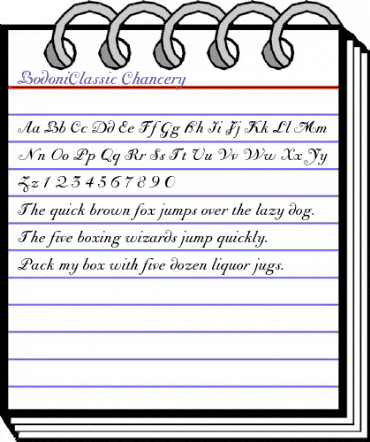 BodoniClassic Chancery
Aa Bb Cc Dd Ee Ff Gg Hh Ii Jj Kk Ll Mm
Nn Oo Pp Qq Rr Ss Tt Uu Vv Ww Xx Yy
Zz 1 2 3 4 5 6 7 8 9 0
The quick brown fox jumps over the lazy dog.
The five boxing wizards jump quickly.
Pack my box with five dozen liquor jugs.